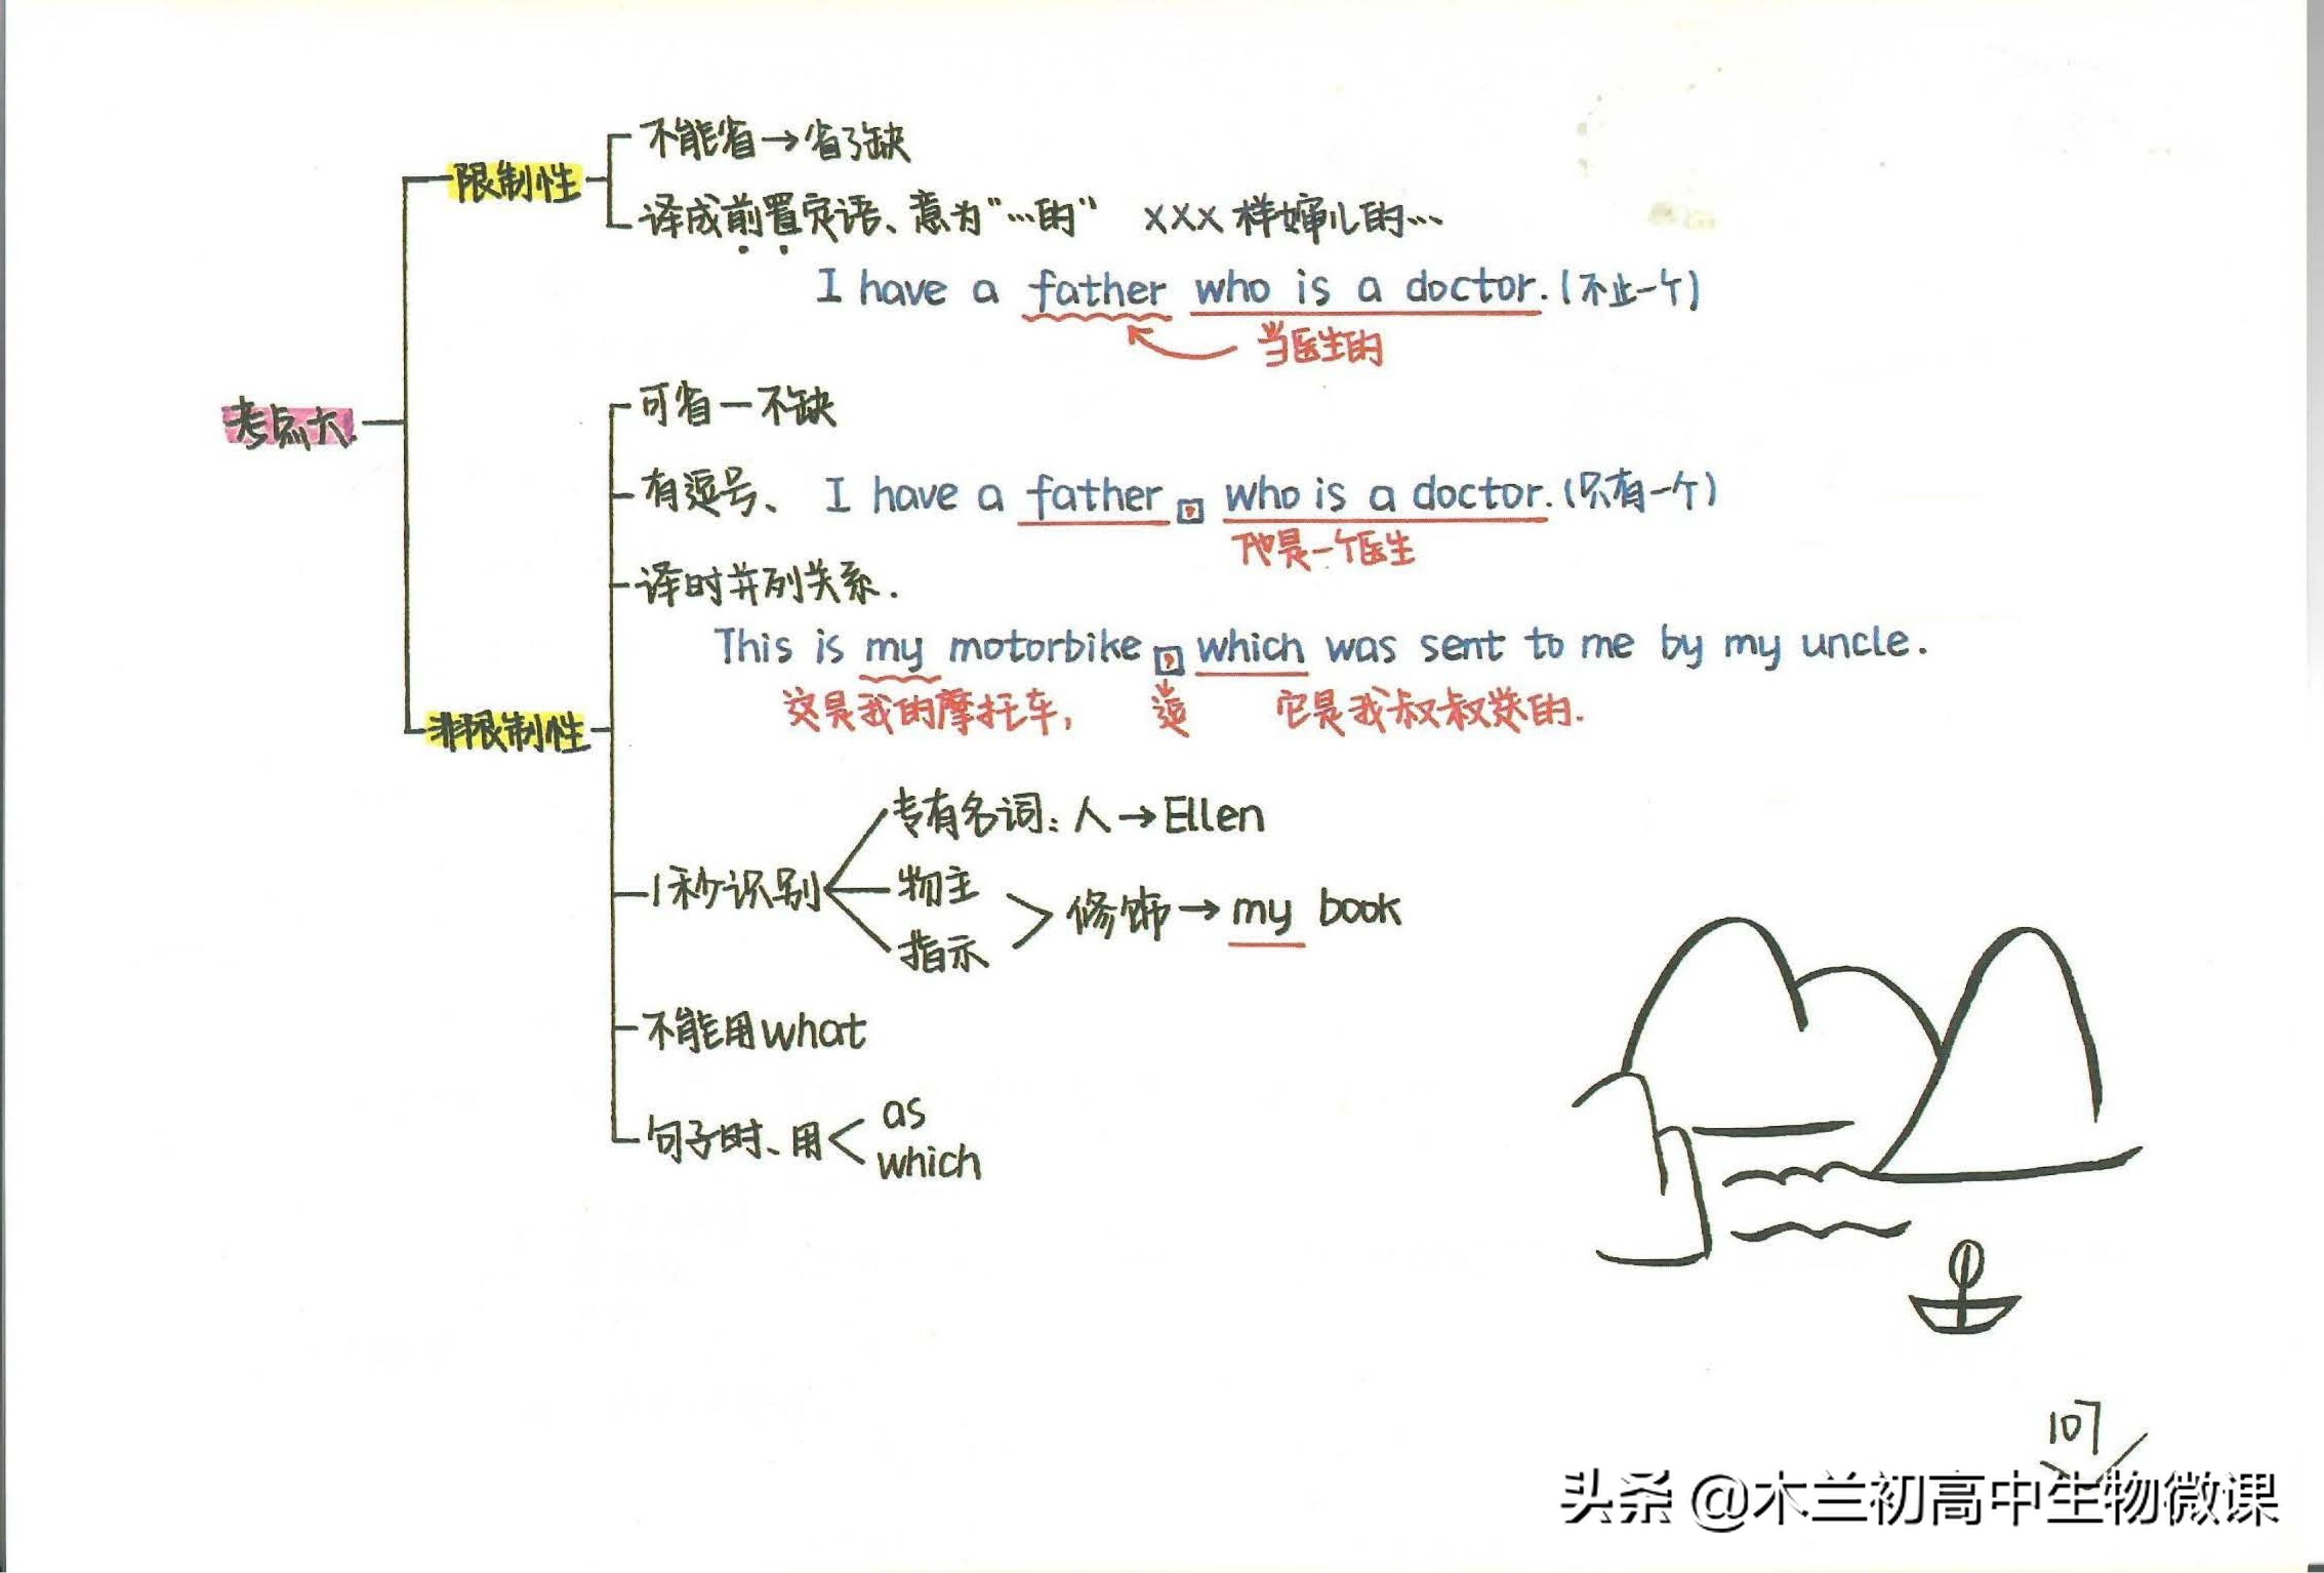 考点六
限制性
不能省→省了缺
译成前置定语、意为"…的" xxx样婶儿的…
I have a father who is a doctor. (不止一个)
当医生的
非限制性
可省一不缺
有逗号、 I have a father , who is a doctor. (只有一个)
他是一个医生
译时并列关系.
This is my motorbike , which was sent to me by my uncle.
这是我的摩托车, 逗 它是我叔叔送的.
1秒识别
专有名词: 人→Ellen
物主
指示
修饰→my book
不能用what
句子时、用
as
which
107
头条 @木兰初高中生物微课